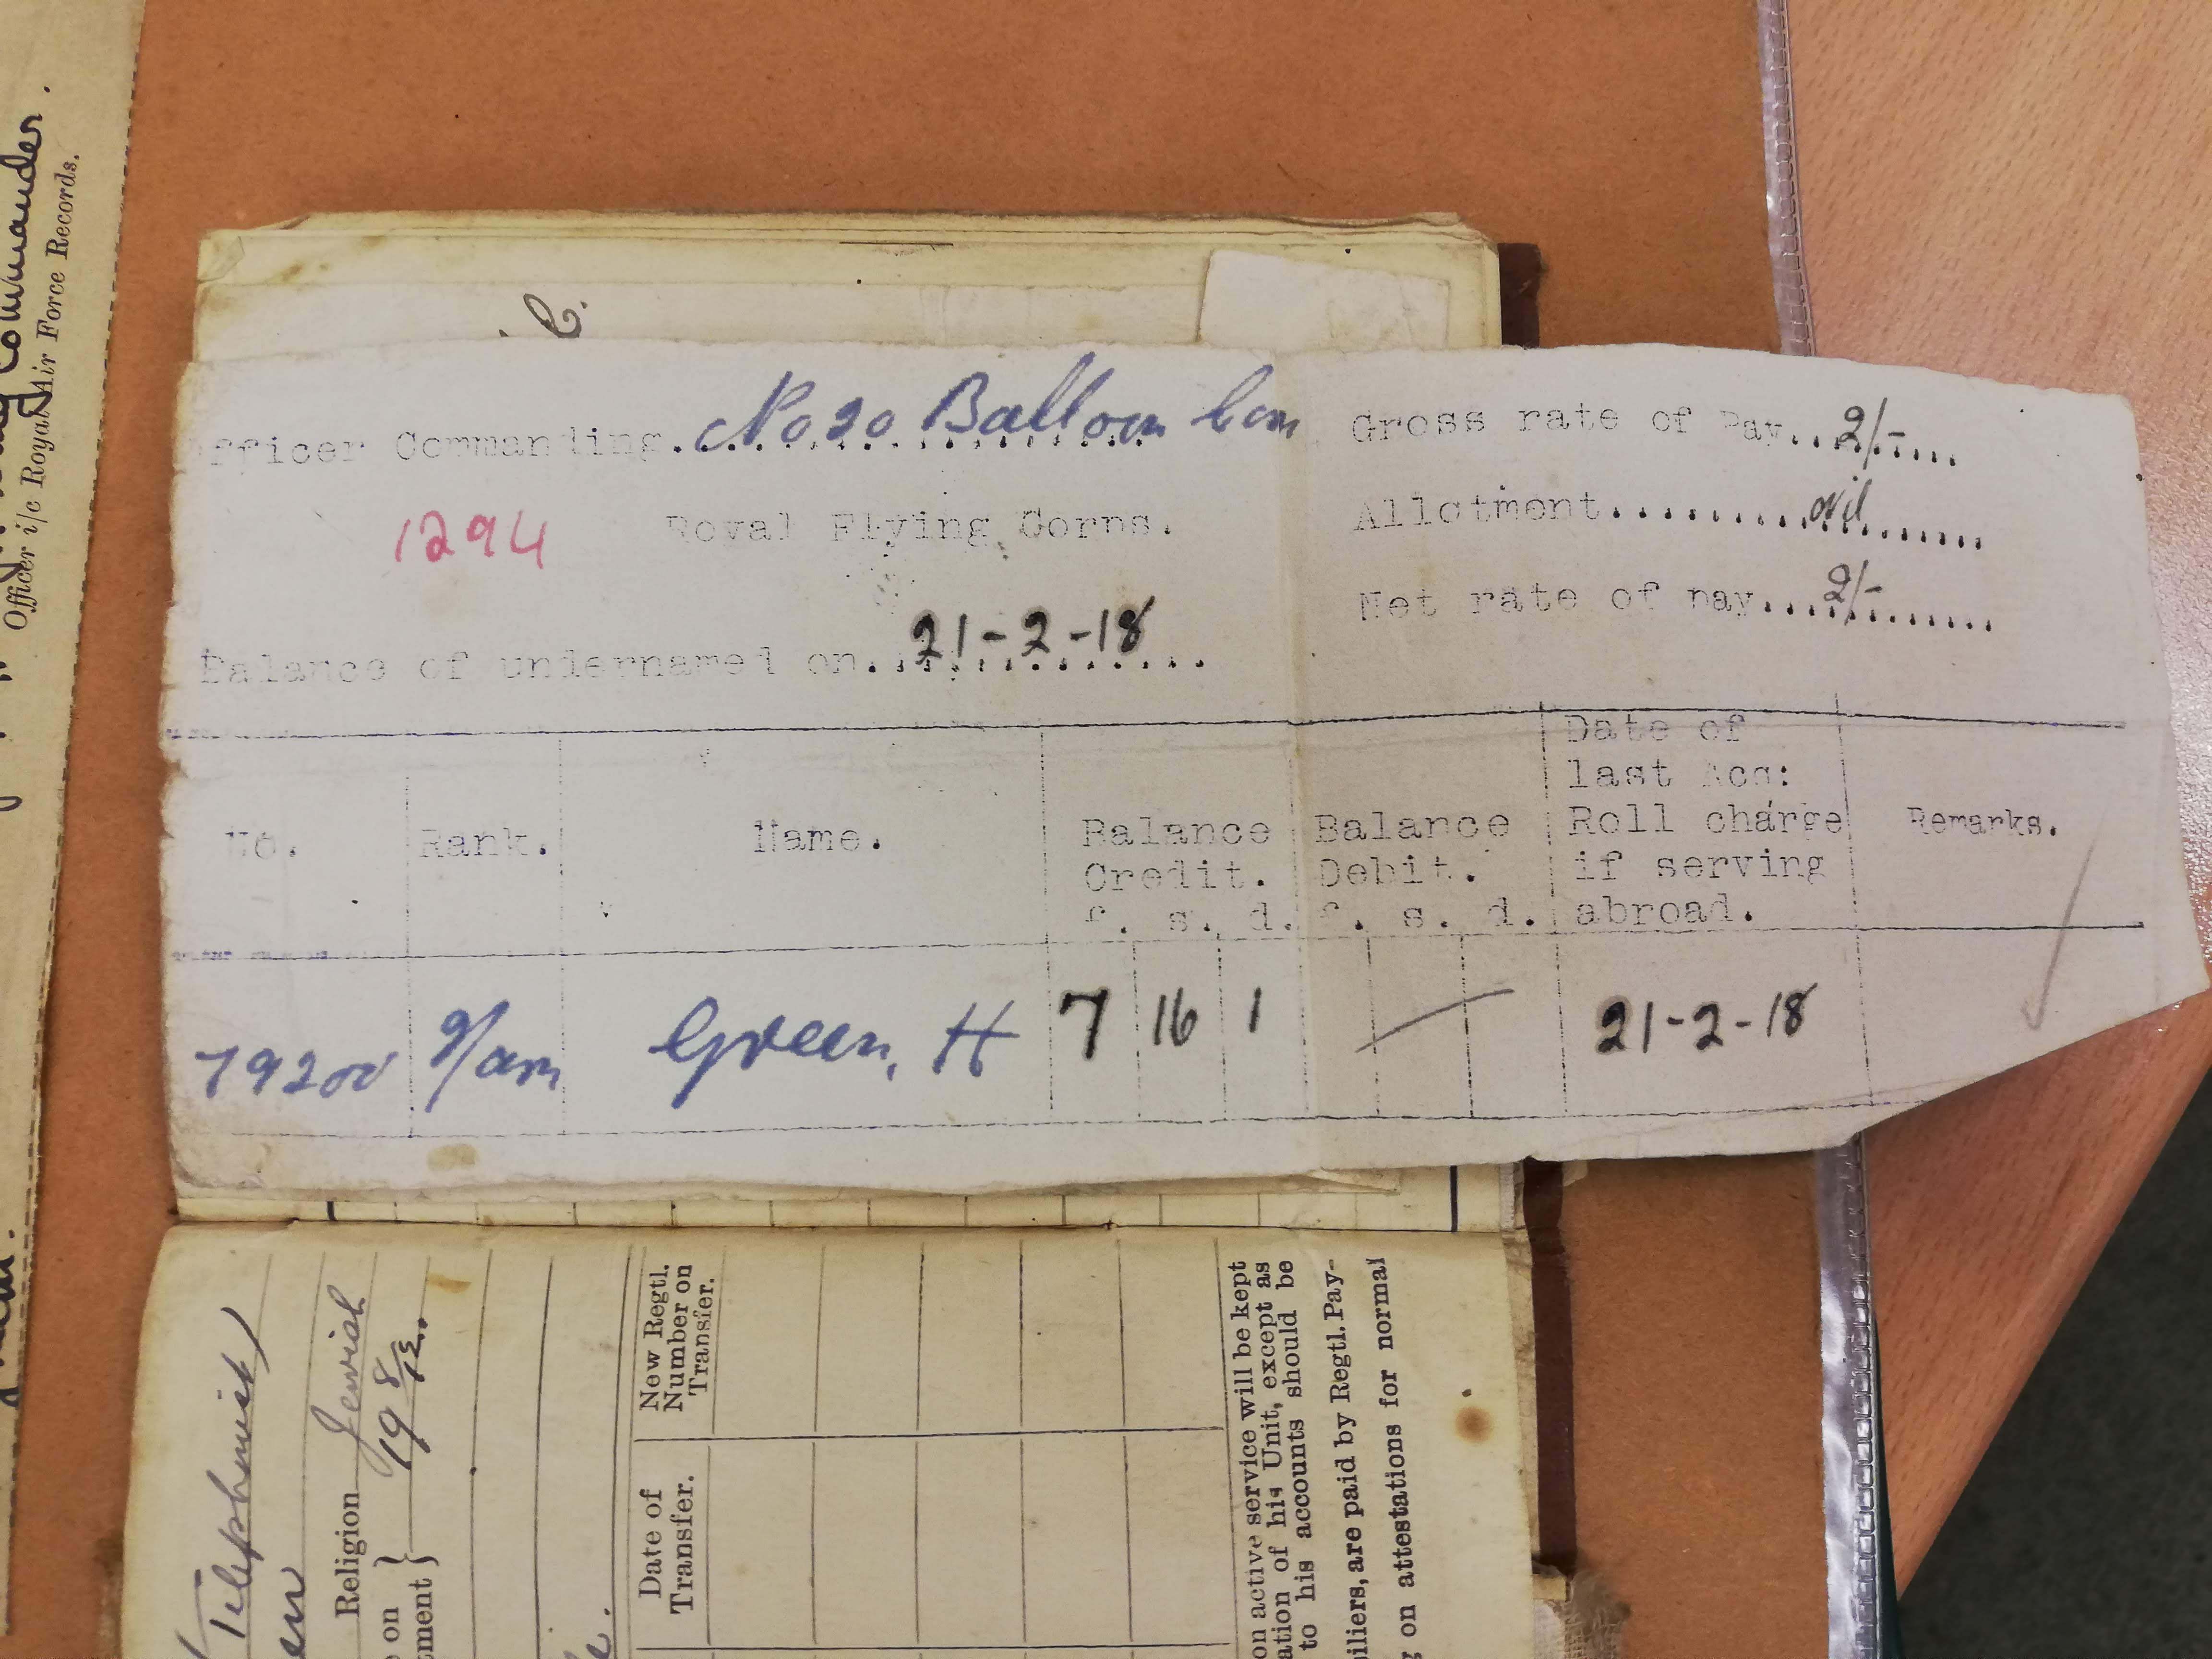 Commander.
Officer i/c Royal Air Force Records.
C.
Officer Commanding. No 20 Balloon Com
1294 Royal Flying Corps.
Balance of undernamed on. 21-2-18
Gross rate of Pay.. 2/-
Allotment.......... nil
Net rate of pay.... 2/-
No. Rank. Name. Balance Credit. £. s. d. Balance Debit. £. s. d. Date of last Acq: Roll charge if serving abroad. Remarks.
79200 2/am Green, H 7 16 1 21-2-18
Telephonist)
Religion Jewish
19 8/12.
New Regtl.
Number on
Transfer.
Date of
Transfer.
on active service will be kept
ation of his Unit, except as
to his accounts should be
siliers, are paid by Regtl. Pay-
on attestations for normal